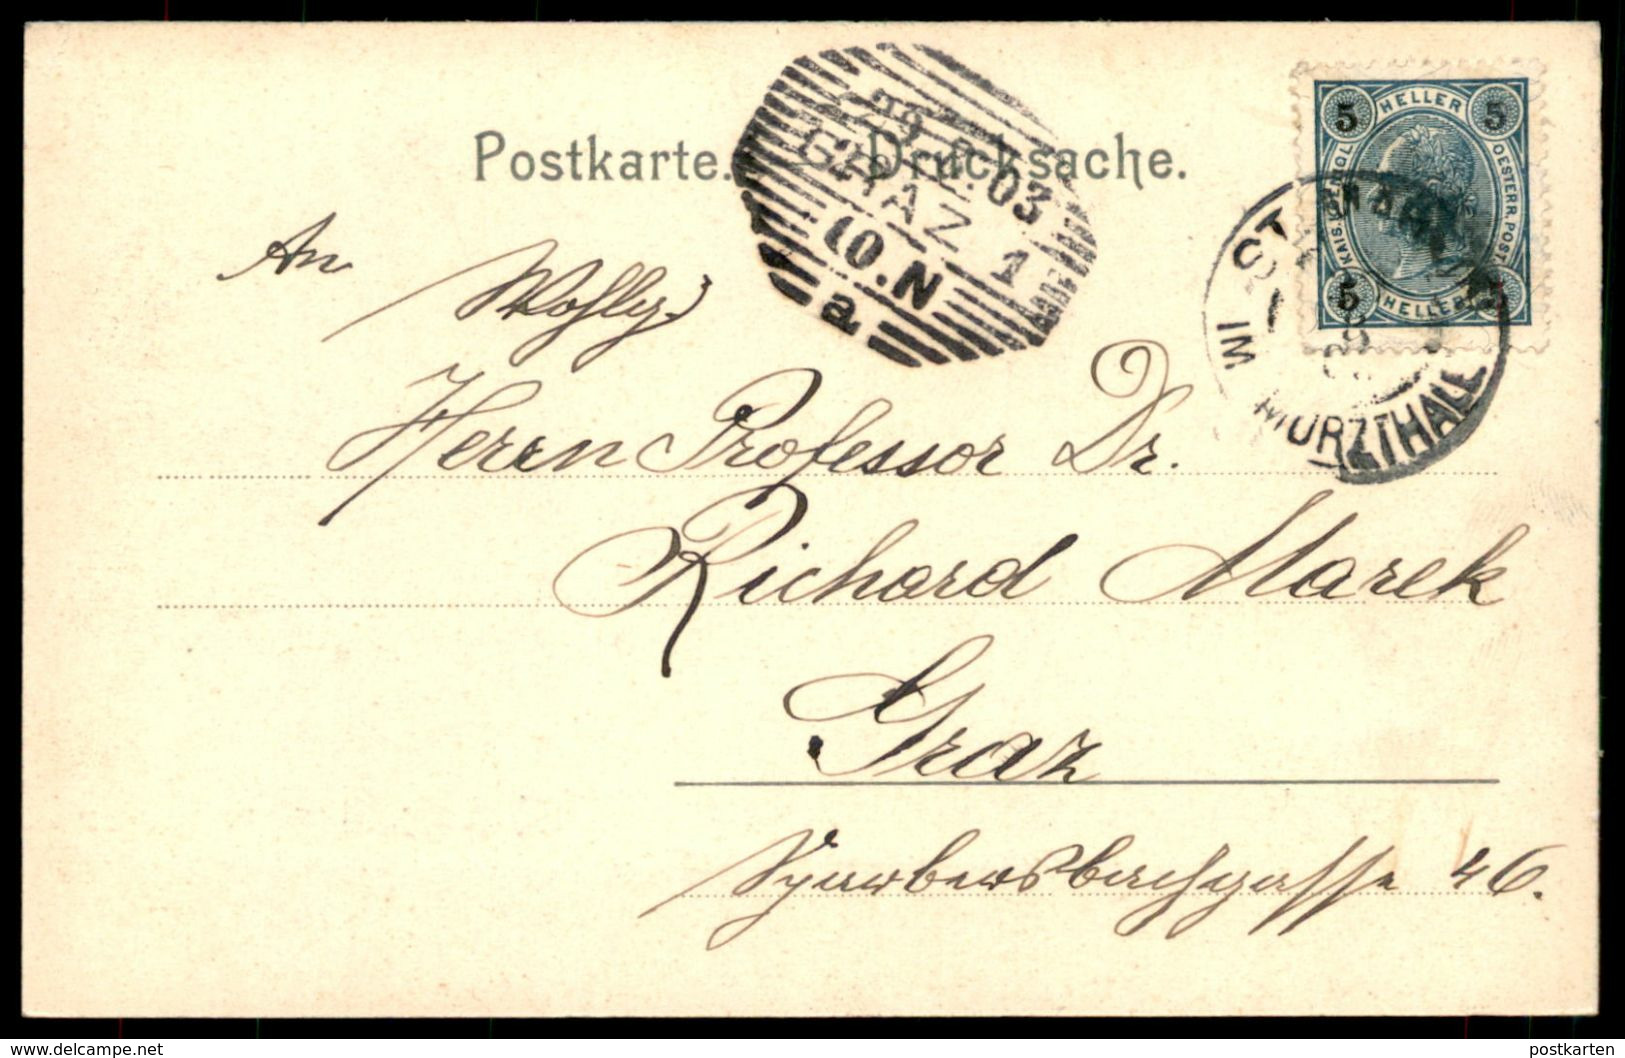 Postkarte. Drucksache.
29.12.03
GRAZ 1
10.N
a
5 HELLER 5
KAIS. KÖNIGL. OESTERR. POST
5 HELLER 5
IM MÜRZTHALE
An
Wohlg.
Herrn Professor Dr.
Richard Marek
Graz
46.
delcampe.net
postkarten